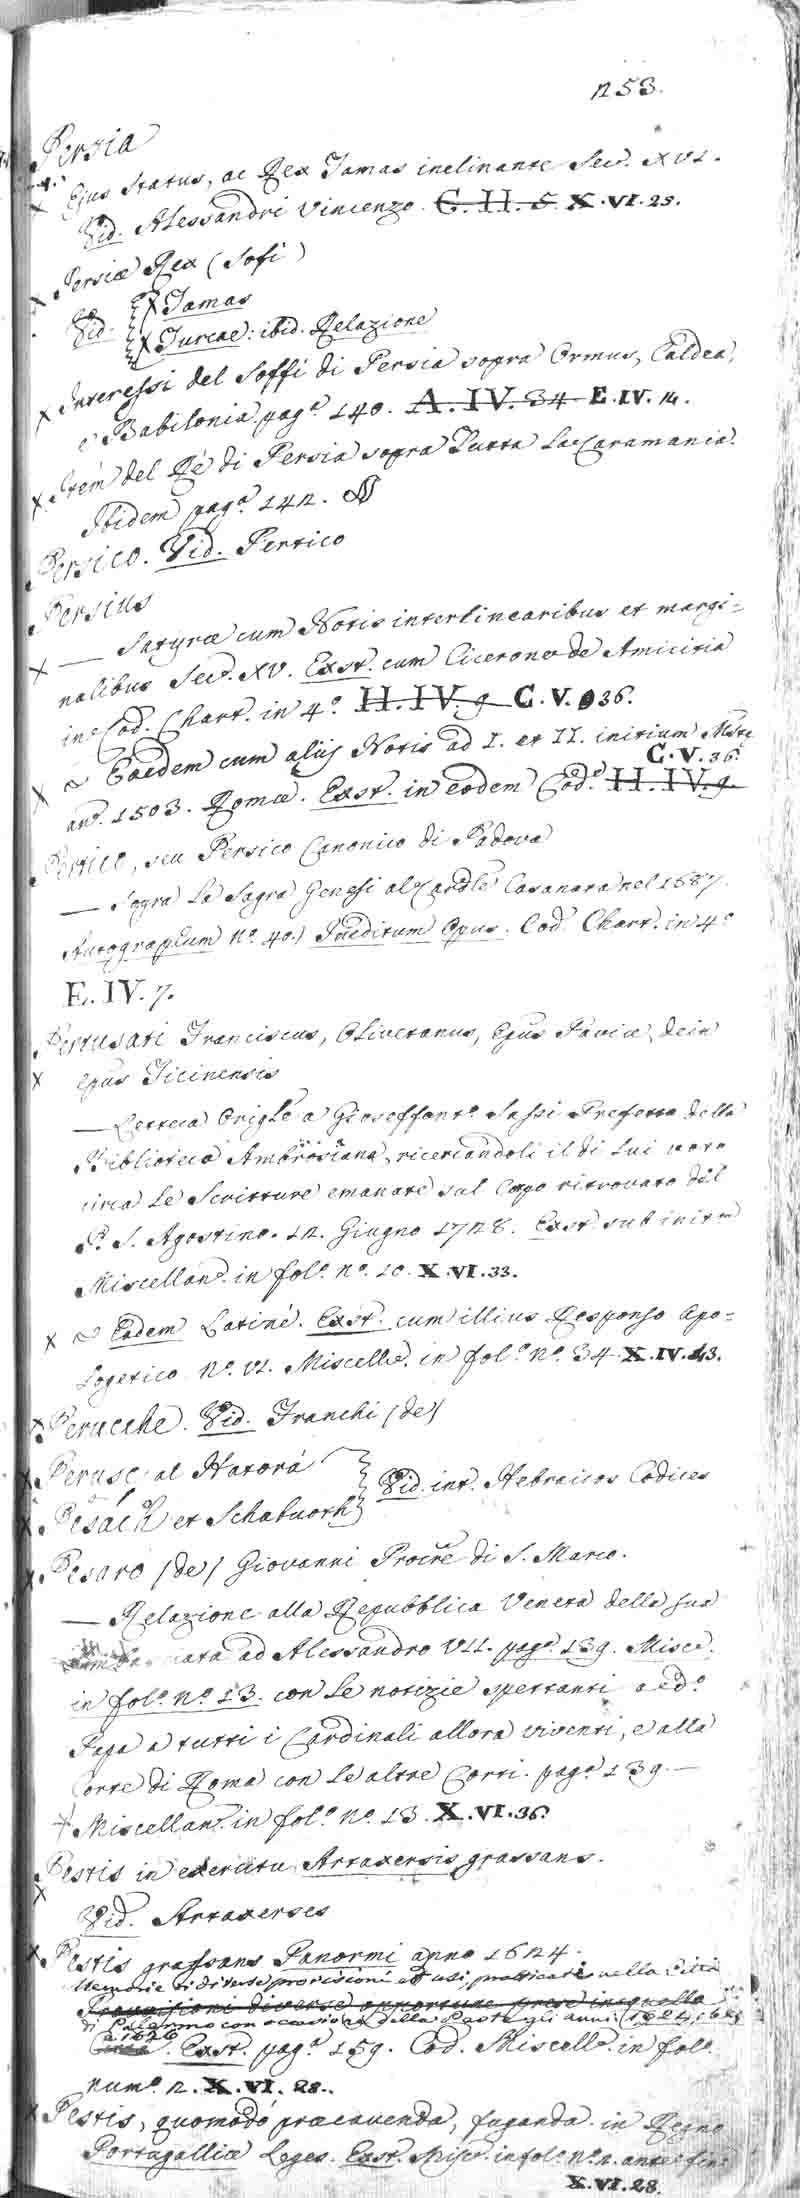 253.
Persia
Ejus Status, ac Rex Tamas inclinante Sec.º XVI.
Vid. Alessandri Vincenzo. C. H. 5 X.VI.25.
Persiæ Rex (Sofi)
Vid. Tamas
Turcae: ibid. Relazione
Interessi del Soffi di Persia sopra Ormus, Caldea,
e Babilonia. pag.ª 140. A. IV. 34 E.IV.14.
Item del Rè di Persia sopra Tutta la Caramania.
Ibidem pag.ª 142.
Persico. Vid. Pertico
Persius
— Satyræ cum Notis interlinearibus et margi=
nalibus Sec.º XV. Exst. cum Cicerone de Amicitia
in Cod. Chart. in 4.º H. IV. 9 C.V.36.
~ Eaedem cum alijs Notis ad I. et II. initium
C.V.36.
an.º 1503. Romæ. Exst. in eodem Cod.e H. IV. 9.
Pertico, seu Persico Canonico di Padova
— Sopra la Sagra Genesi al Cardle Casanata nel 1687.
Autographum n.º 40.) Ineditum Opus. Cod. Chart. in 4.º
E. IV. 7.
Pertusati Franciscus, Olivetanus, Epus Pavia, dein
epus Ticinensis
— Lettera Origle a Gioseffant.º Sassi Prefetto della
Biblioteca Ambrosiana, ricercandoli il di lui voto
circa le Scritture emanate sul Corpo ritrovato del
P. S. Agostino. 12. Giugno 1728. Exst. sub
Miscellan. in fol.º n.º 10. X.VI.33.
~ Eadem Latinè. Exst. cum illius Responso Apo=
logetico n.º VI. Miscell. in fol.º n.º 34 X.IV.43.
Perucche. Vid. Franchi (de)
Perusc. al Hatorà
Vid. int. Hebraicos Codices
Pesach et Schabuoth
Pesaro (de) Giovanni Procre di S. Marco.
— Relazione alla Repubblica Veneta della sua
ad Alessandro VII. pag.ª 139. Misce.
in fol.º n.º 13. con le notizie spettanti a ed.º
Papa a tutti i Cardinali allora viventi, e alla
Corte di Roma con le altre Corti. pag.ª 139. —
Miscellan. in fol.º n.º 13. X.VI.36.
Pestis in exercitu Artaxersis grassans.
Vid. Artaxerses
Pestis grassans Panormi anno 1624.
Memorie di diverse provisioni et usi, pratticati nella Città
Provisioni diverse opportune prese in quella
di Palermo con occasione della Peste gli anni 1624, 1625
e 1626
Exst. pag.ª 159. Cod. Miscell. in fol.º
num.º 2. X.VI.28.
Pestis, quomodo præcavenda, fuganda in Regno
Portugalliæ Leges. Exst. Misc. in fol.º n.º 2. ante fin.
X.VI.28.